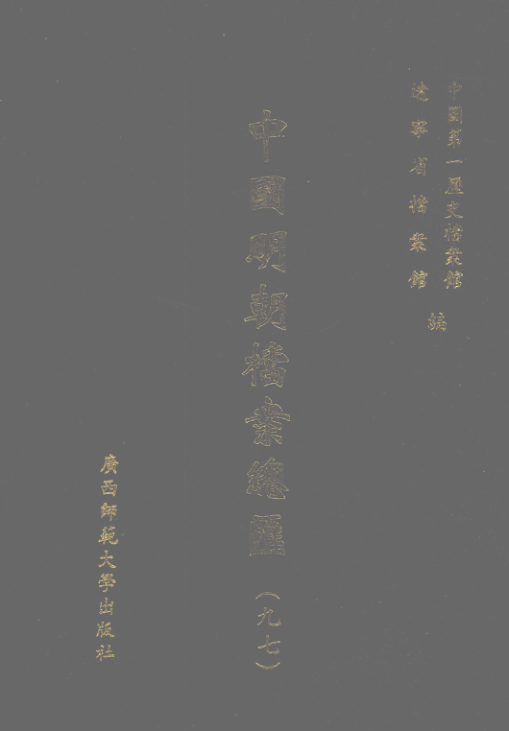 中國第一歷史檔案館
遼寧省檔案館
編
中國明朝檔案總匯
(九七)
廣西師範大學出版社